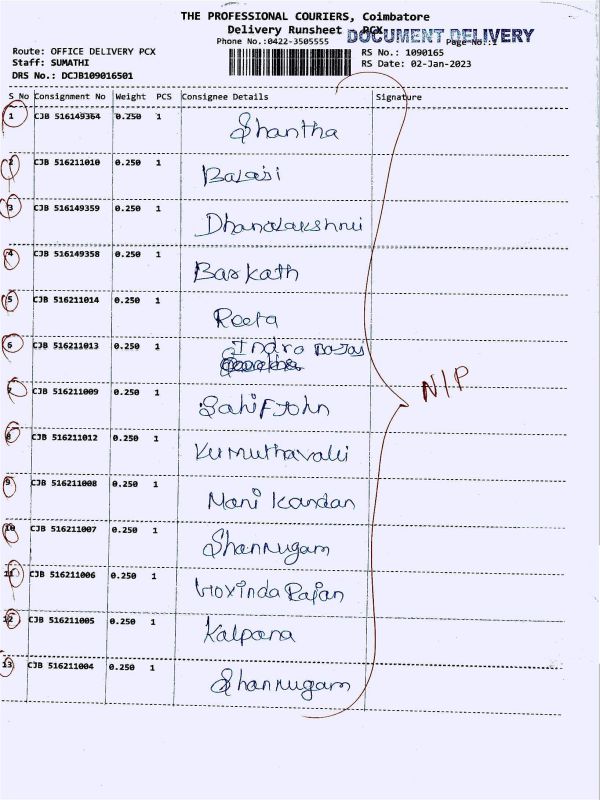 THE PROFESSIONAL COURIERS, Coimbatore
Delivery Runsheet PCX
DOCUMENT DELIVERY
Phone No.:0422-3505555 Page No.:1
Route: OFFICE DELIVERY PCX RS No.: 1090165
Staff: SUMATHI RS Date: 02-Jan-2023
DRS No.: DCJB109016501
S No Consignment No Weight PCS Consignee Details Signature
1 CJB 516149364 0.250 1 Shantha
2 CJB 516211010 0.250 1 Balaji
3 CJB 516149359 0.250 1 Dhanalakshmi
4 CJB 516149358 0.250 1 Barkath
5 CJB 516211014 0.250 1 Reeta
6 CJB 516211013 0.250 1 Indra
7 CJB 516211009 0.250 1 John
8 CJB 516211012 0.250 1 Kumuthavalli
9 CJB 516211008 0.250 1 Mani kandan
10 CJB 516211007 0.250 1 Shanmugam
11 CJB 516211006 0.250 1 Govinda Rajan
12 CJB 516211005 0.250 1 Kalpana
13 CJB 516211004 0.250 1 Shanmugam
N/P